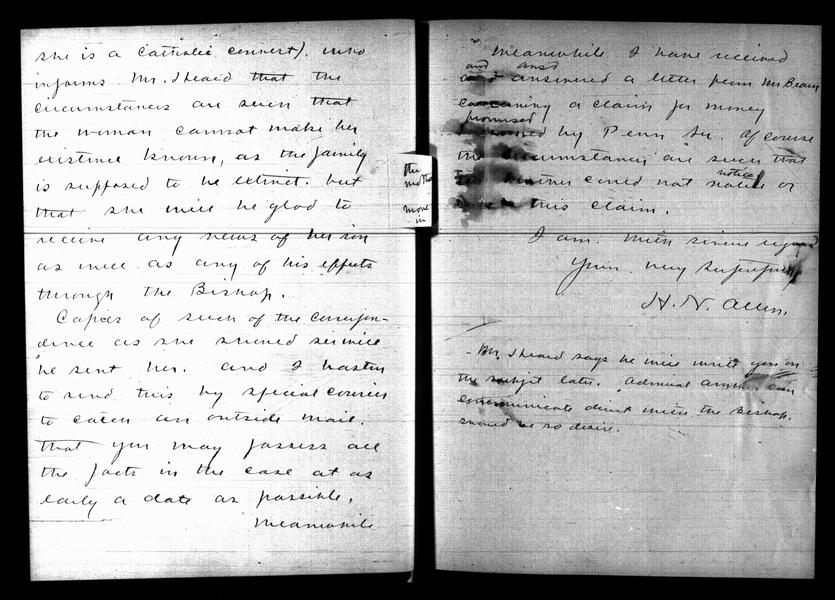 she is a Catholic convert). who
informs Mr. Heard that the
circumstances are such that
the woman cannot make her
existence known, as the family
is supposed to be extinct. but
that she will be glad to
receive any news of her son
as well as any of his effects
through the Bishop.
Copies of such of the correspon-
dence as she should see will
be sent her. and I hasten
to send this by special courier
to catch an outside mail.
that you may possess all
the facts in the case at as
early a date as possible.
Meanwhile
the
mother
move
in
Meanwhile I have received
and ansd
answered a letter from Mr
a claim for money
promised
by Penn Sr. Of course
the circumstances are such that
notice
could not notice or
this claim.
I am. With sincere regard
Yours very respectfully
H. N. Allen.
Mr. Heard says he will write you on
the subject later. Admiral can
communicate direct with the Bishop.
should he so desire.